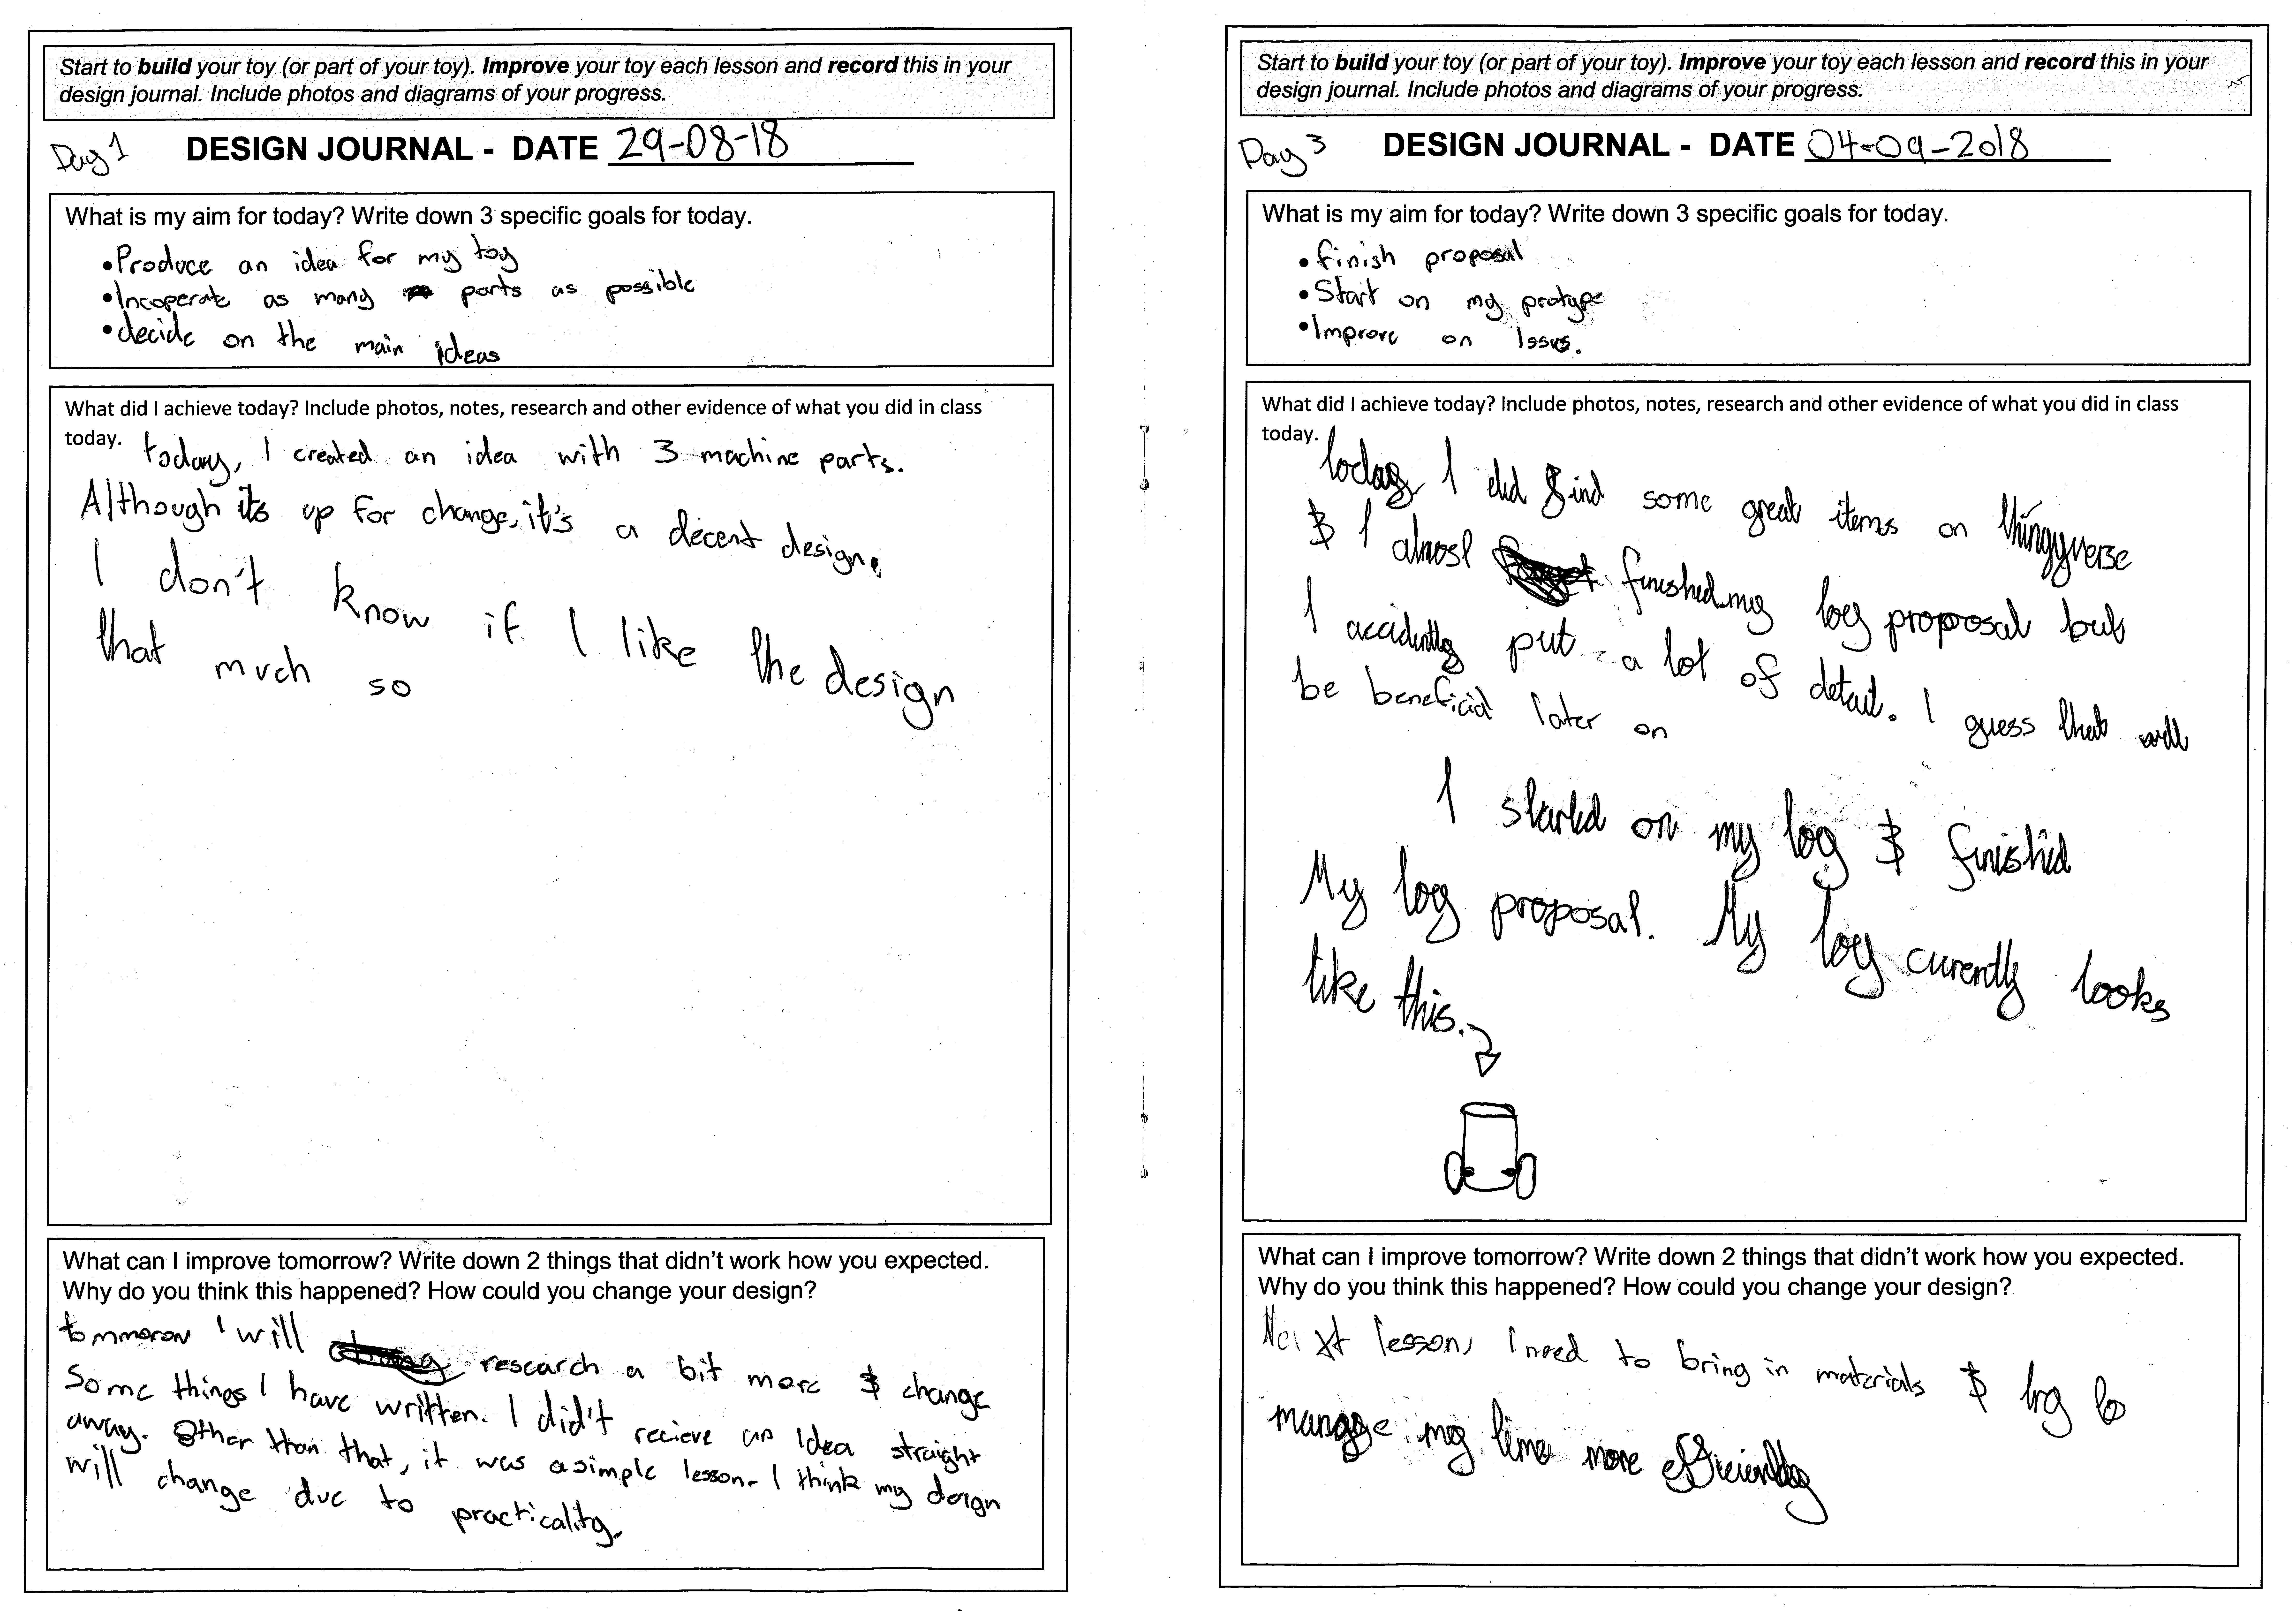 Start to build your toy (or part of your toy). Improve your toy each lesson and record this in your
design journal. Include photos and diagrams of your progress.
Day 1
DESIGN JOURNAL - DATE 29-08-18
What is my aim for today? Write down 3 specific goals for today.
•Produce an idea for my toy
•Incoperate as many parts as possible
•decide on the main ideas
What did I achieve today? Include photos, notes, research and other evidence of what you did in class
today. today, I created an idea with 3 machine parts.
Although its up for change, it's a decent design.
I don't know if I like the design
that much so
What can I improve tomorrow? Write down 2 things that didn't work how you expected.
Why do you think this happened? How could you change your design?
tommorow I will research a bit more & change
Some things I have written. I did't recieve an Idea straight
away. Other than that, it was a simple lesson. I think my design
will change due to practicality.
Start to build your toy (or part of your toy). Improve your toy each lesson and record this in your
design journal. Include photos and diagrams of your progress.
Day 3
DESIGN JOURNAL - DATE 04-09-2018
What is my aim for today? Write down 3 specific goals for today.
•finish proposal
•Start on my protype
•Improve on Issus.
What did I achieve today? Include photos, notes, research and other evidence of what you did in class
today. today, I did find some great items on thingyverse
& I almost finished my toy proposal but
I accidently put a lot of detail. I guess that will
be beneficial later on
I started on my toy & finished
My toy proposal. My toy curently looks
like this.
What can I improve tomorrow? Write down 2 things that didn't work how you expected.
Why do you think this happened? How could you change your design?
Next lesson, I need to bring in materials & try to
manage my time more efficiently